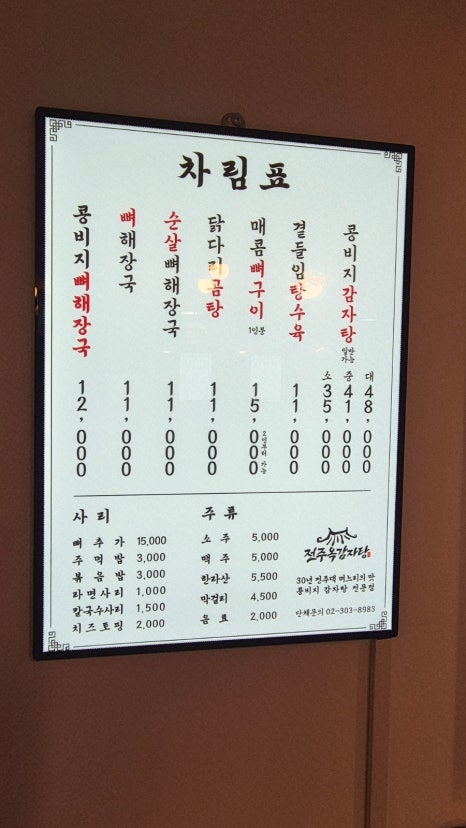 차림표
콩비지뼈해장국 12,000
뼈해장국 11,000
순살뼈해장국 11,000
닭다리곰탕 11,000
매콤뼈구이 1인분 15,000 2인부터 가능
곁들임탕수육 11,000
콩비지감자탕 일반 가능
소 35,000
중 41,000
대 48,000
사리
뼈추가 15,000
주먹밥 3,000
볶음밥 3,000
라면사리 1,000
칼국수사리 1,500
치즈토핑 2,000
주류
소주 5,000
맥주 5,000
한라산 5,500
막걸리 4,500
음료 2,000
전주옥감자탕
30년 전주댁 며느리의 맛
콩비지 감자탕 전문점
단체문의 02-303-8983